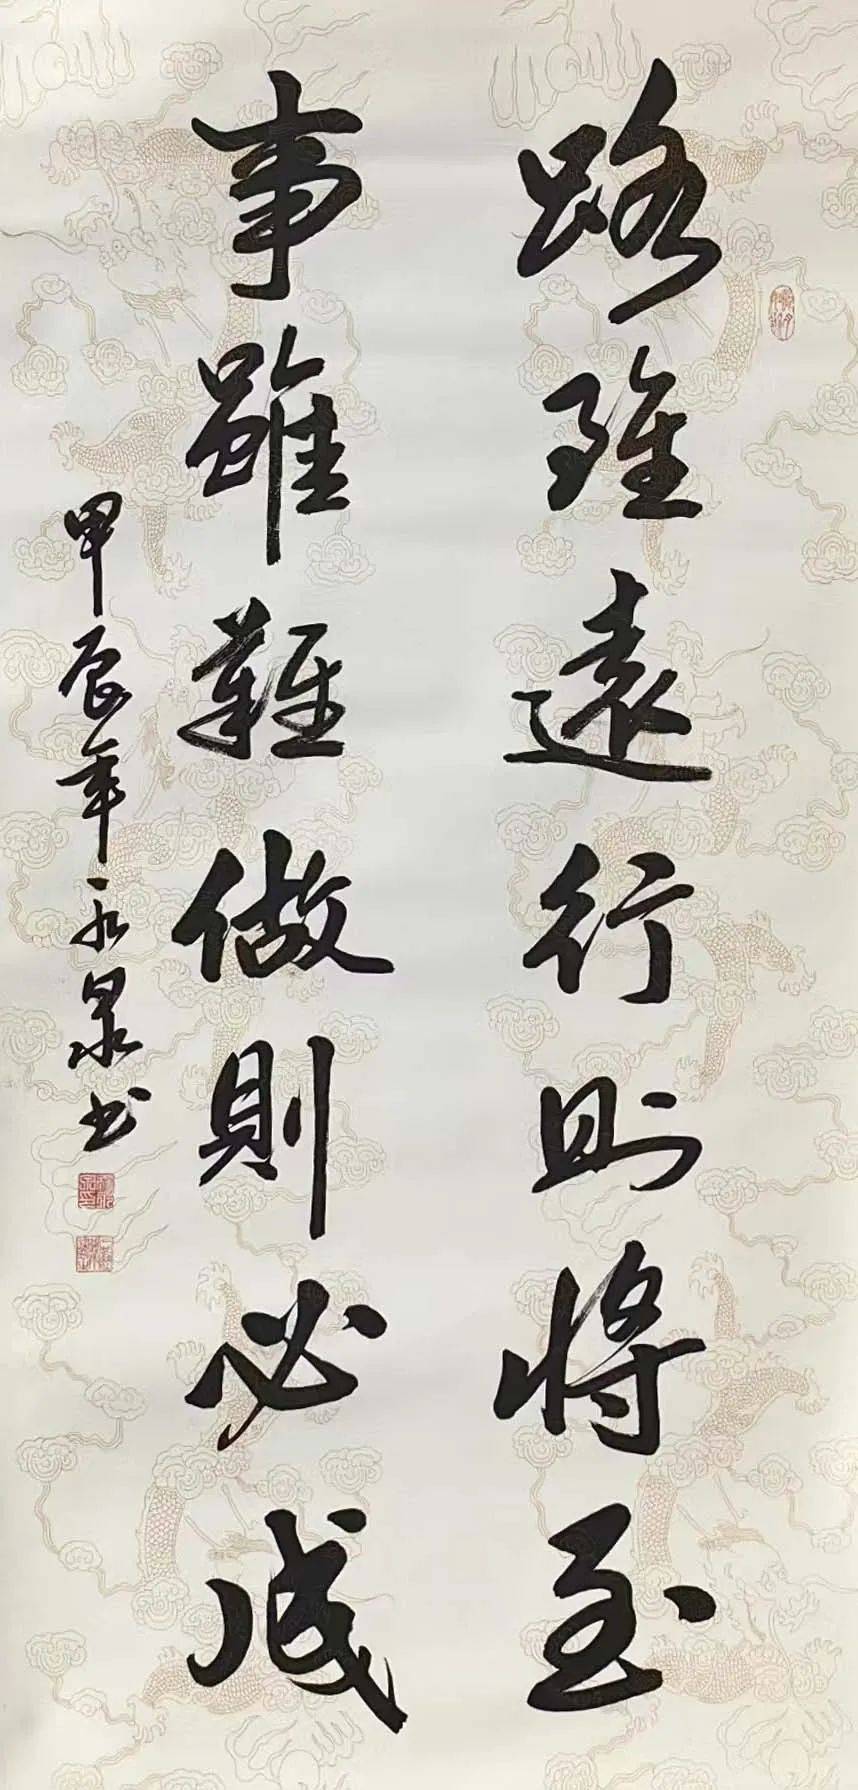 路雖遠行則將至
事雖難做則必成
甲辰年永泉书